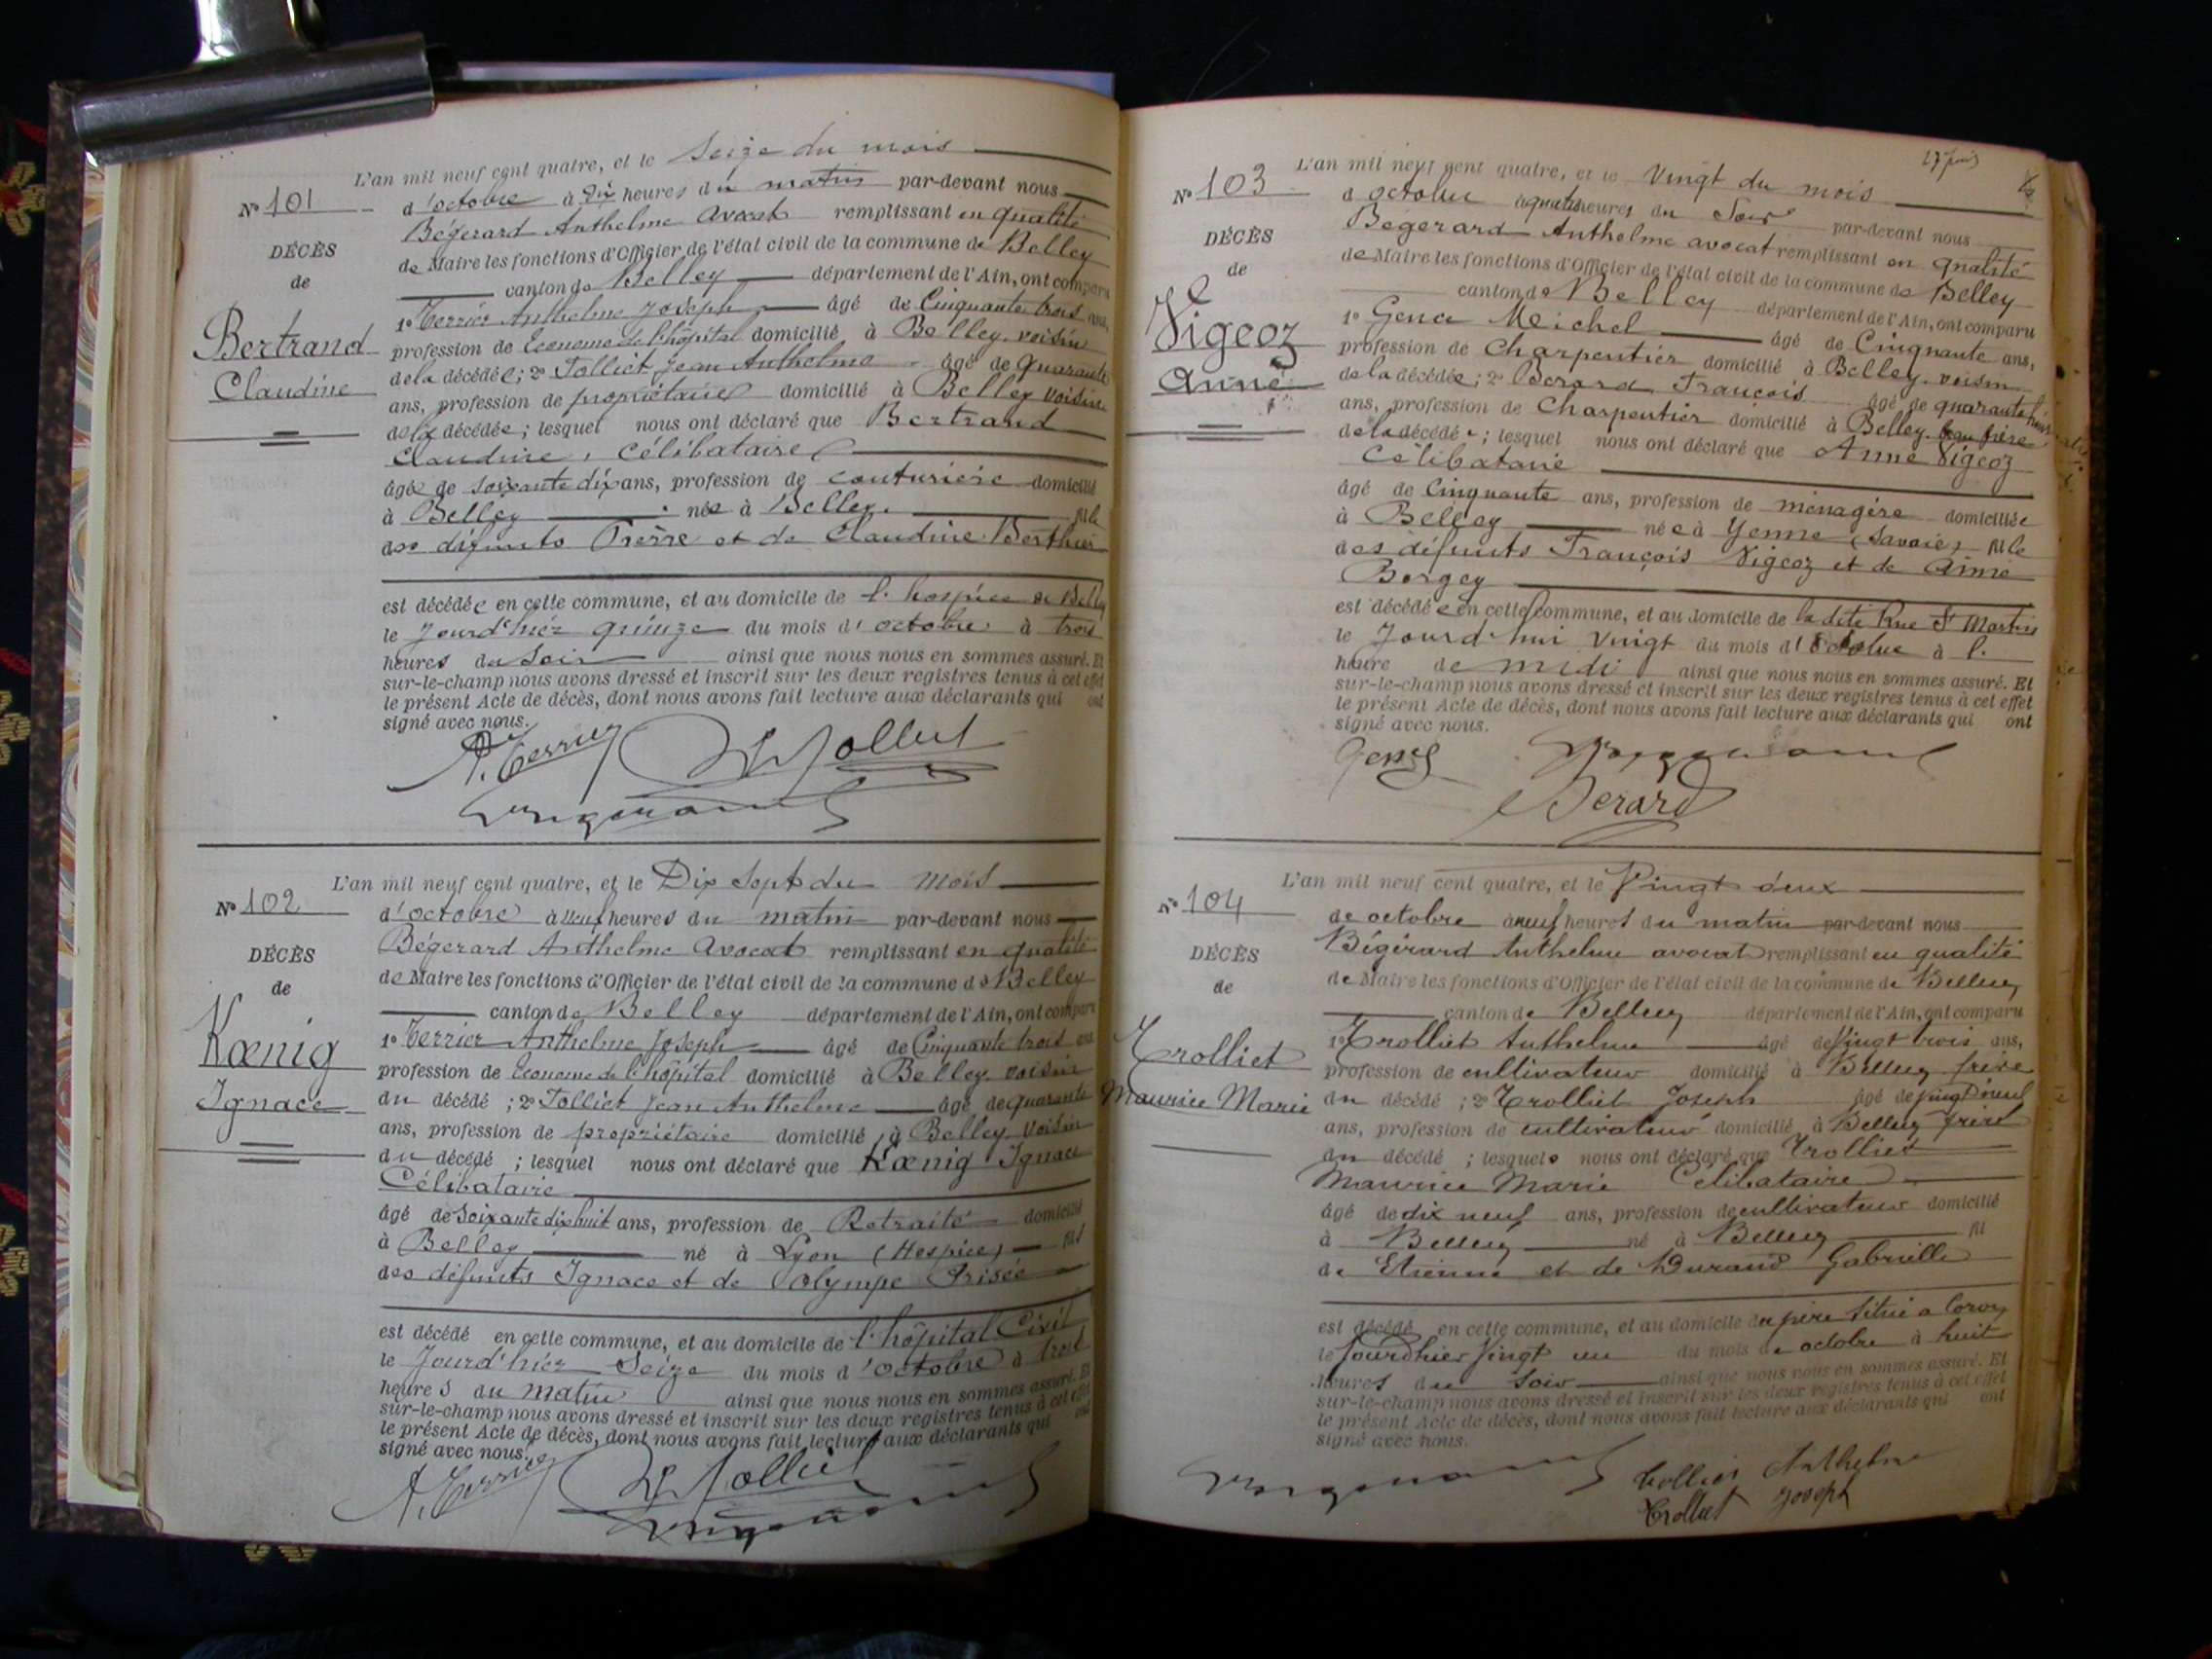 L'an mil neuf cent quatre, et le Seize du mois
N° 101
d'octobre à Dix heures du matin par-devant nous
Bégerard Anthelme Avocat remplissant en qualité
DÉCÈS
de Maire les fonctions d'Officier de l'état civil de la commune de Belley
de
canton de Belley département de l'Ain, ont comparu
1° Terrier Anthelme Joseph âgé de Cinquante trois ans,
Bertrand
profession de Econome de l'hôpital domicilié à Belley, voisin
Claudine
de la décédée; 2° Tolliet Jean Anthelme âgé de quarante
ans, profession de propriétaire domicilié à Belley Voisin
de la décédée; lesquel nous ont déclaré que Bertrand
Claudine, Célibataire
âgée de soixante dix ans, profession de couturière domicilié
à Belley née à Belley, fille
des défunts Pierre et de Claudine Berthier
est décédée en cette commune, et au domicile de l'hospice de Belley
le Jourd'hier quinze du mois d'octobre à trois
heures du Soir ainsi que nous nous en sommes assuré. Et
sur-le-champ nous avons dressé et inscrit sur les deux registres tenus à cet effet
le présent Acte de décès, dont nous avons fait lecture aux déclarants qui ont
signé avec nous.
A. Terrier Tolliet
L'an mil neuf cent quatre, et le Dix Sept du Mois
N° 102
d'octobre à neuf heures du matin par-devant nous
Bégerard Anthelme Avocat remplissant en qualité
DÉCÈS
de Maire les fonctions d'Officier de l'état civil de la commune de Belley
de
canton de Belley département de l'Ain, ont comparu
1° Terrier Anthelme Joseph âgé de Cinquante trois ans
Kœnig
profession de Econome de l'hôpital domicilié à Belley voisin
Ignace
du décédé; 2° Tolliet Jean Anthelme âgé de quarante
ans, profession de propriétaire domicilié à Belley Voisin
du décédé; lesquel nous ont déclaré que Kœnig Ignace
Célibataire
âgé de soixante dix huit ans, profession de Retraité domicilié
à Belley né à Lyon (Hospice) fils
des défunts Ignace et de Olympe Frisée
est décédé en cette commune, et au domicile de l'hôpital Civil
le Jourd'hier Seize du mois d'octobre à trois
heures du matin ainsi que nous nous en sommes assuré. Et
sur-le-champ nous avons dressé et inscrit sur les deux registres tenus à cet effet
le présent Acte de décès, dont nous avons fait lecture aux déclarants qui ont
signé avec nous.
A. Terrier Tolliet
L'an mil neuf cent quatre, et le Vingt du mois
N° 103
d'octobre à quatre heures du Soir par-devant nous
Bégerard Anthelme avocat remplissant en qualité
DÉCÈS
de Maire les fonctions d'Officier de l'état civil de la commune de Belley
de
canton de Belley département de l'Ain, ont comparu
Vigeoz
1° Genca Meichel âgé de Cinquante ans,
profession de Charpentier domicilié à Belley, voisin
Anne
de la décédée; 2° Berard François âgé de quarante huit
ans, profession de Charpentier domicilié à Belley, beau frère
de la décédée; lesquel nous ont déclaré que Anne Vigeoz
Célibataire
âgé de Cinquante ans, profession de ménagère domiciliée
à Belley née à Yenne (Savoie) fille
des défunts François Vigeoz et de Anne
Borgey
est décédée en cette commune, et au domicile de la dite Rue St Martin
le Jourd'hui Vingt du mois d'Octobre à l'
heure de midi ainsi que nous nous en sommes assuré. Et
sur-le-champ nous avons dressé et inscrit sur les deux registres tenus à cet effet
le présent Acte de décès, dont nous avons fait lecture aux déclarants qui ont
signé avec nous.
Berard
L'an mil neuf cent quatre, et le Vingt deux
N° 104
de octobre à neuf heures du matin par-devant nous
Bégérard Anthelme avocat remplissant en qualité
DÉCÈS
de Maire les fonctions d'Officier de l'état civil de la commune de Belley
de
canton de Belley département de l'Ain, ont comparu
Trolliet
1° Trolliet Anthelme âgé de Vingt trois ans,
profession de cultivateur domicilié à Belley frère
Maurice Marie
du décédé; 2° Trolliet Joseph âgé de vingt neuf
ans, profession de cultivateur domicilié à Belley frère
du décédé; lesquels nous ont déclaré que Trolliet
Maurice Marie Célibataire
âgé de dix neuf ans, profession de cultivateur domicilié
à Belley né à Belley fil
de Etienne et de Durand Gabrielle
est décédé en cette commune, et au domicile du père situé a Coron
le Jourdhier Vingt un du mois de octobre à huit
heures du Soir ainsi que nous nous en sommes assuré. Et
sur-le-champ nous avons dressé et inscrit sur les deux registres tenus à cet effet
le présent Acte de décès, dont nous avons fait lecture aux déclarants qui ont
signé avec nous.
Trolliet Anthelme
Trolliet Joseph